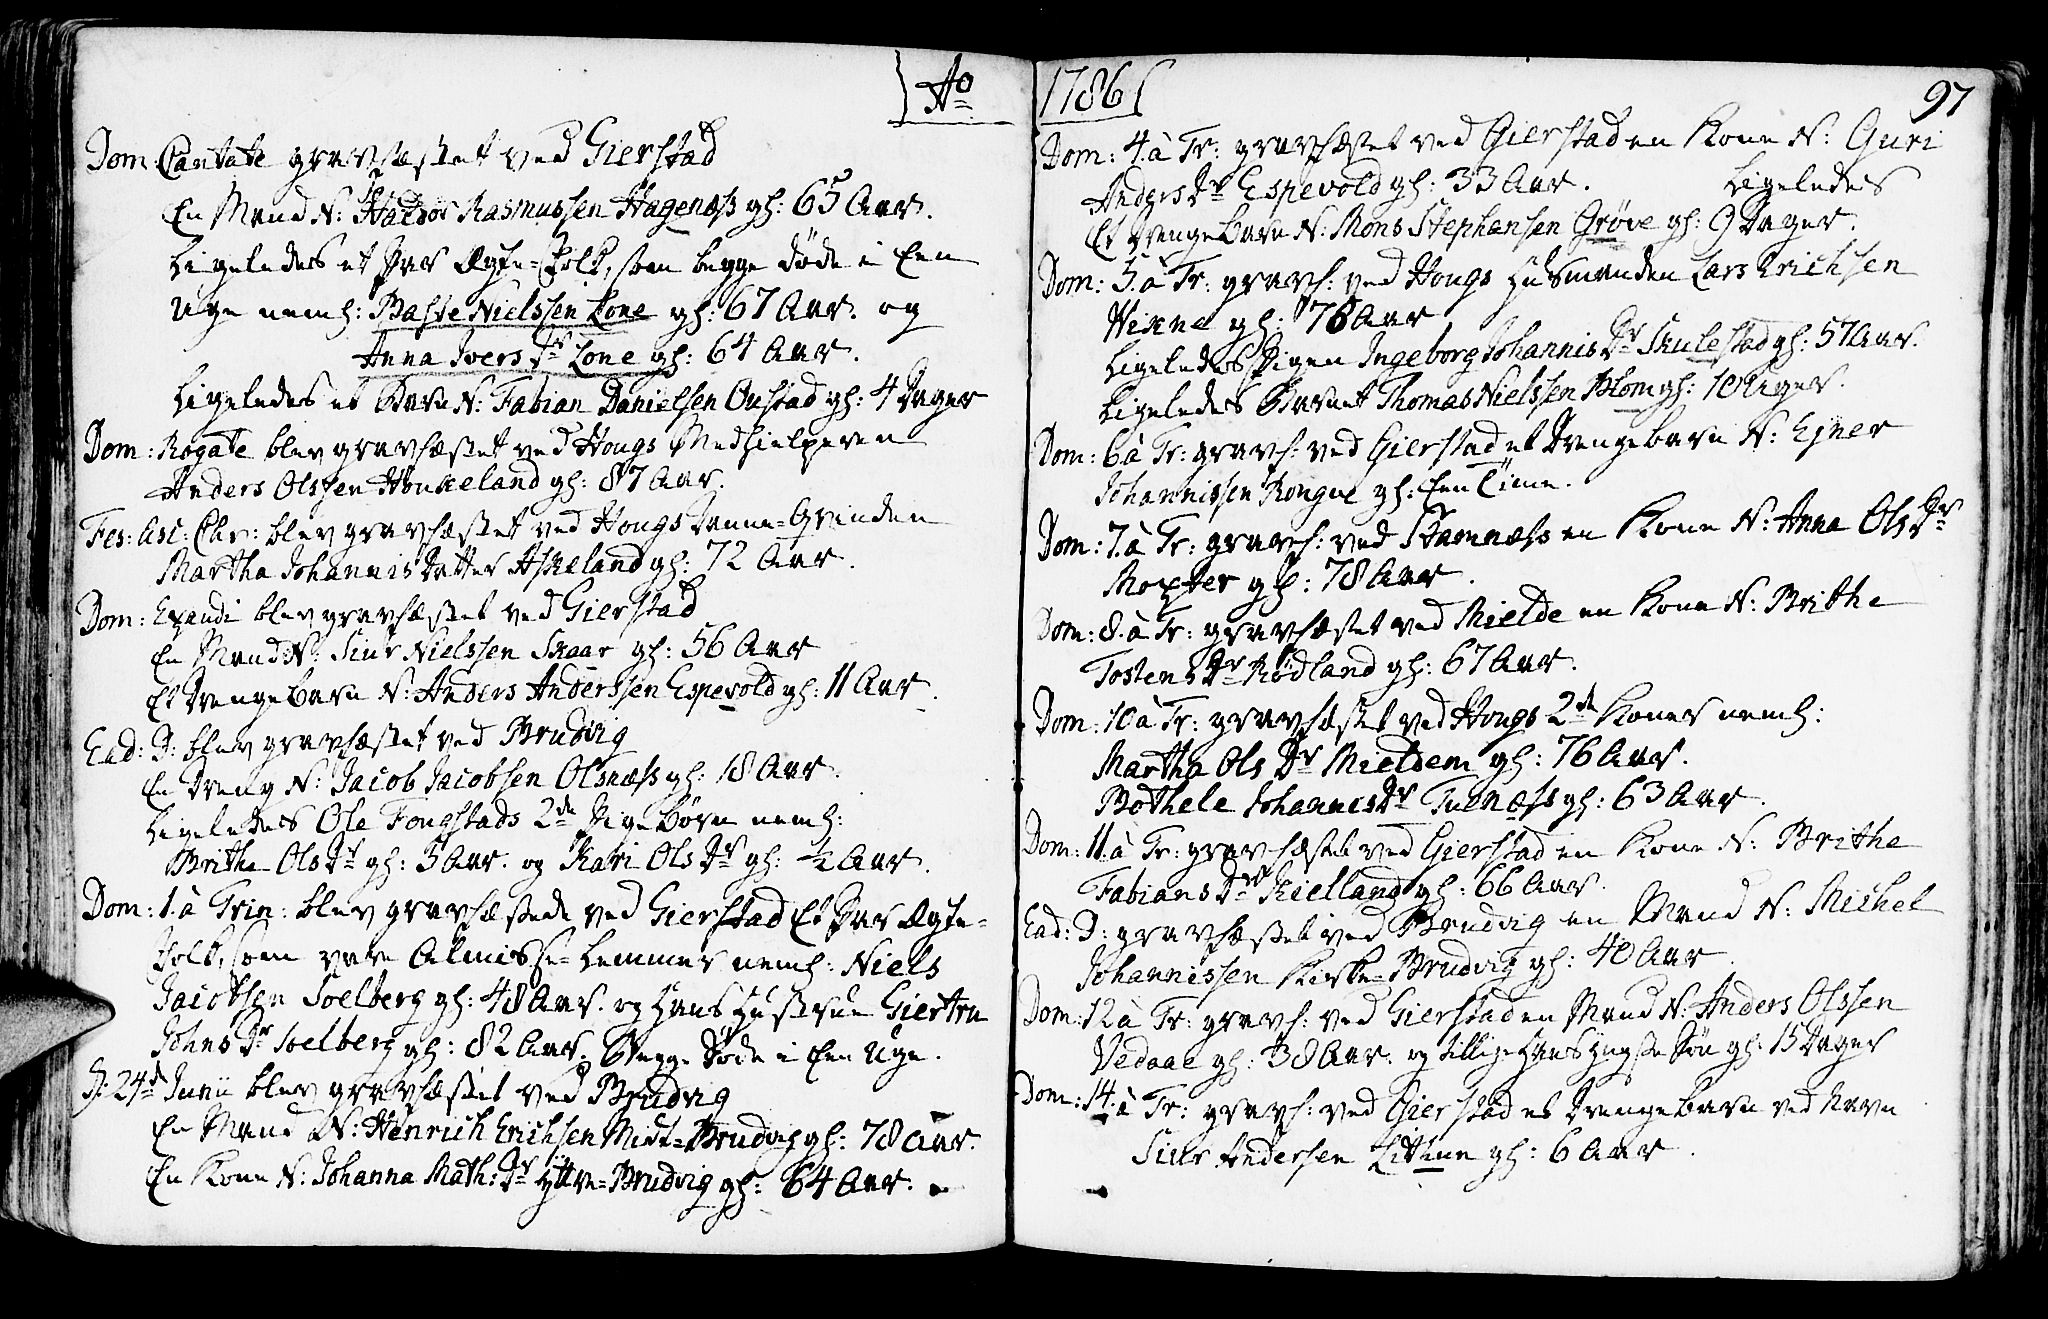 Ao
Dom: Cantate gravfæstet ved Gierstad
En Mand N: Haldor Rasmussen Hagenæss gl: 65 Aar.
Ligeledes et Par Ægte=Folk, som begge døde i Een
Uge neml: Baste Nielssen Lone gl: 67 Aar. og
Anna Ivers Dr Lone gl: 64 Aar.
Ligeledes et Barn N: Fabian Danielsen Oustad gl: 4 Dager
Dom: Rogate blev gravfæstet ved Hougs Medhielperen
Anders Olssen Houkeland gl: 87 Aar.
Fes: Asc: Chr: blev gravfæstet ved Hougs Danne=Qvinden
Martha Johannis Datter Askeland gl: 72 Aar.
Dom: Exaudi blev gravfæstet ved Gierstad
En Mand N: Siur Nielssen Skaar gl: 56 Aar
Et Drengebarn N: Anders Anderssen Espevold gl: 11 Aar.
Ead: D: blev gravfæstet ved Brudvig
En Dreng N: Jacob Jacobsen Olsnæss gl: 18 Aar.
Ligeledes Ole Fougstads 2de Pigebørn neml:
Brithe Ols Dr gl: 5 Aar. og Kari Ols Dr gl: ½ Aar.
Dom: 1. à Trin: blev gravfæstede ved Gierstad Et Par Ægte-
Folk, som vare Almisse=Lemmer neml: Niels
Jacobsen Soelberg gl: 48 Aar. og hans Hustrue Giertru
Johns Dr Soelberg gl: 82 Aar. Begge døde i Een Uge.
D: 24de Junii blev gravfæstet ved Brudvig
En Mand N: Henrich Erichsen Midt=Brudvig gl: 78 Aar.
En Kone N: Johanna Math: Dr Yttre=Brudvig gl: 64 Aar.
1786
97
Dom: 4. à Tr: gravfæstet ved Gierstad en Kone N: Guri
Anders Dr Espevold gl: 33 Aar. Ligeledes
Et Drengebarn N: Mons Stephansen Grøve gl: 9 Dager.
Dom: 5. à Tr: gravf: ved Hougs Husmanden Lars Erichsen
Vikne gl: 76 Aar
Ligeledes Pigen Ingeborg Johannis Dr Skulestad gl: 57 Aar.
Ligeledes Barnet Thomas Nielssen Blom gl: 10 Uger.
Dom: 6 à Tr: gravf: ved Gierstad et Drengebarn N: Ejner
Johannissen Rongve gl: Een Time.
Dom: 7. à Tr: gravf: ved Stamnæss en Kone N: Anna Ols Dr
Moxter gl: 78 Aar.
Dom: 8. à Tr: gravfæstet ved Mielde en Kone N: Brithe
Tostens Dr Rødland gl: 67 Aar.
Dom: 10 à Tr: gravfæstet ved Hougs 2de Koner neml:
Martha Ols Dr Mieldem gl: 76 Aar.
Bothele Johannis Dr Tuenæss gl: 63 Aar.
Dom: 11. à Tr: gravfæstet ved Gierstad en Kone N: Brithe
Fabians Dr Kielland gl: 66 Aar.
Ead: D: gravfæstet ved Brudvig en Mand N: Michel
Johannissen Kirke=Brudvig gl: 40 Aar.
Dom: 12 à Tr: gravf: ved Gierstad en Mand N: Anders Olssen
Vedaae gl: 38 Aar. og tillige hans yngste Søn gl: 15 Dager
Dom: 14. à Tr: gravf: ved Gierstad et Drengebarn ved Navn
Siur Andersen Litlun gl: 6 Aar.